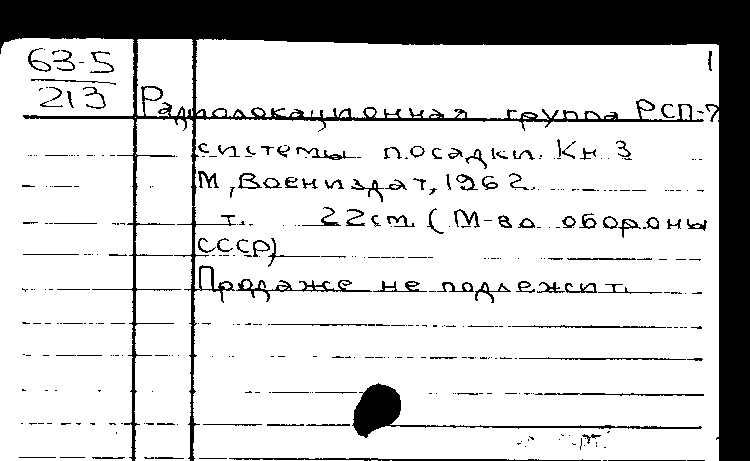 63-5 1
213
Радиолокационная группа РСП-7
системы посадки. Кн 3
М, Воениздат, 1962.
т. 22см. (М-во обороны
СССР)
Продаже не подлежит.